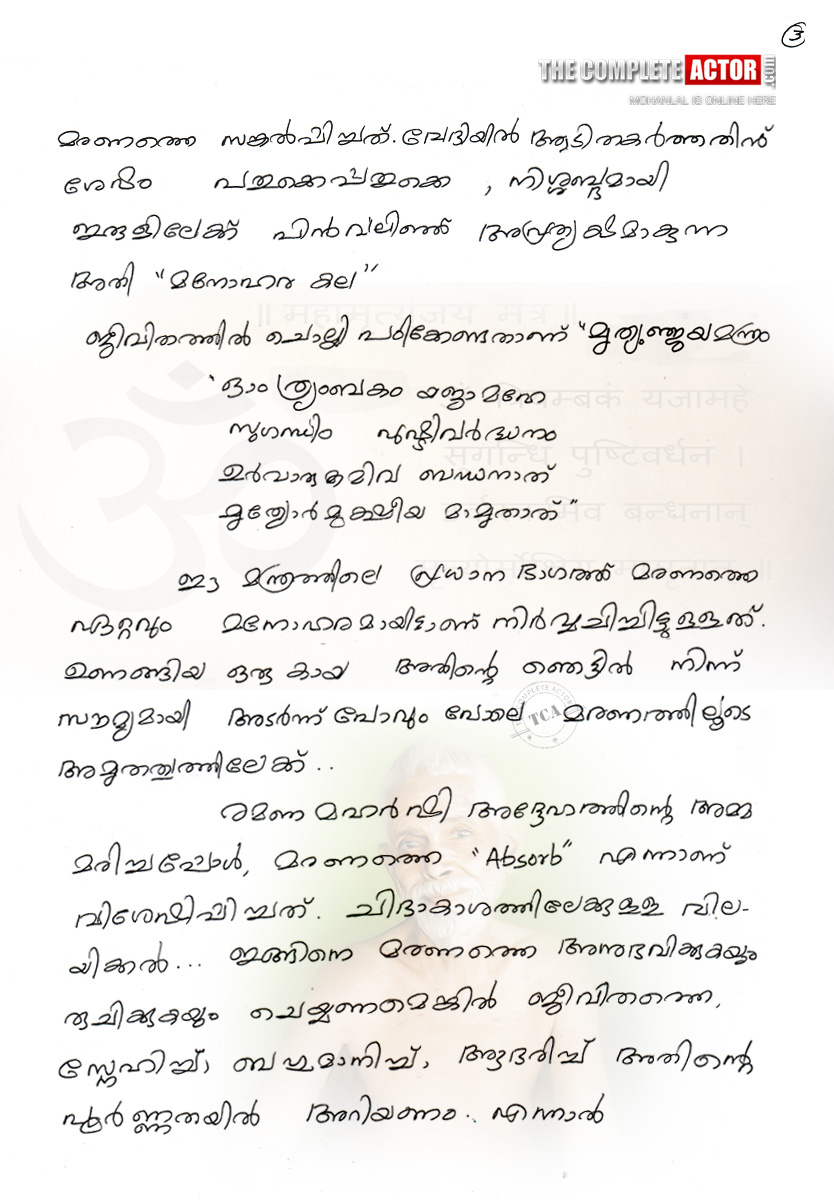 3
THE COMPLETE ACTOR .COM
MOHANLAL IS ONLINE HERE
മരണത്തെ സങ്കൽപ്പിച്ചത്. വേദിയിൽ ആടിതകർത്തതിന്
ശേഷം പതുക്കെപ്പതുക്കെ, നിശ്ശബ്ദമായി
ഇരുളിലേക്ക് പിൻവലിഞ്ഞ് അപ്രത്യക്ഷമാകുന്ന
അതി "മനോഹര കല"
॥ महामृत्युंजय मंत्र ॥
ജീവിതത്തിൽ ചൊല്ലി പഠിക്കേണ്ടതാണ് "മൃത്യുഞ്ജയമന്ത്രം
"ഓം ത്ര്യംബകം യജാമഹേ
സുഗന്ധിം പുഷ്ടിവർദ്ധനം
ഉർവാരുകമിവ ബന്ധനാത്
മൃത്യോർമുക്ഷീയ മാമൃതാത്"
ॐ
यजामहे
पुष्टिवर्धनं ।
बन्धनान्
ഈ മന്ത്രത്തിലെ പ്രധാന ഭാഗത്ത് മരണത്തെ
ഏറ്റവും മനോഹരമായിട്ടാണ് നിർവ്വചിച്ചിട്ടുള്ളത്.
ഉണങ്ങിയ ഒരു കായ അതിന്റെ ഞെട്ടിൽ നിന്ന്
സൗമ്യമായി അടർന്ന് പോവും പോലെ മരണത്തിലൂടെ
COMPLETE ACTOR
TCA
അമൃതത്വത്തിലേക്ക്..
രമണ മഹർഷി അദ്ദേഹത്തിന്റെ അമ്മ
മരിച്ചപ്പോൾ, മരണത്തെ "Absorb" എന്നാണ്
വിശേഷിപ്പിച്ചത്. ചിദാകാശത്തിലേക്കുള്ള വില-
യിക്കൽ... ഇങ്ങിനെ മരണത്തെ അനുഭവിക്കുകയും
രുചിക്കുകയും ചെയ്യണമെങ്കിൽ ജീവിതത്തെ,
സ്നേഹിച്ച്, ബഹുമാനിച്ച്, ആദരിച്ച് അതിന്റെ
പൂർണ്ണതയിൽ അറിയണം.. എന്നാൽ